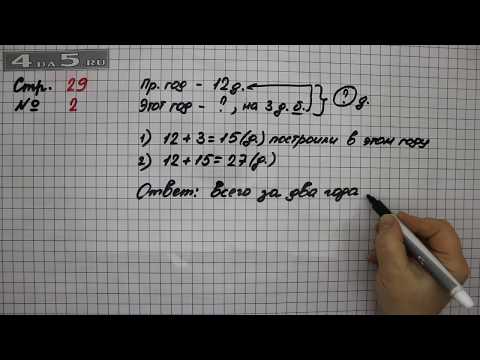 4 DA 5 .RU
Стр. 29
№ 2
Пр. год - 12 д.
Этот год - ?, на 3 д. б. ? д.
1) 12 + 3 = 15 (д.) построили в этом году
2) 12 + 15 = 27 (д.)
Ответ: всего за два года